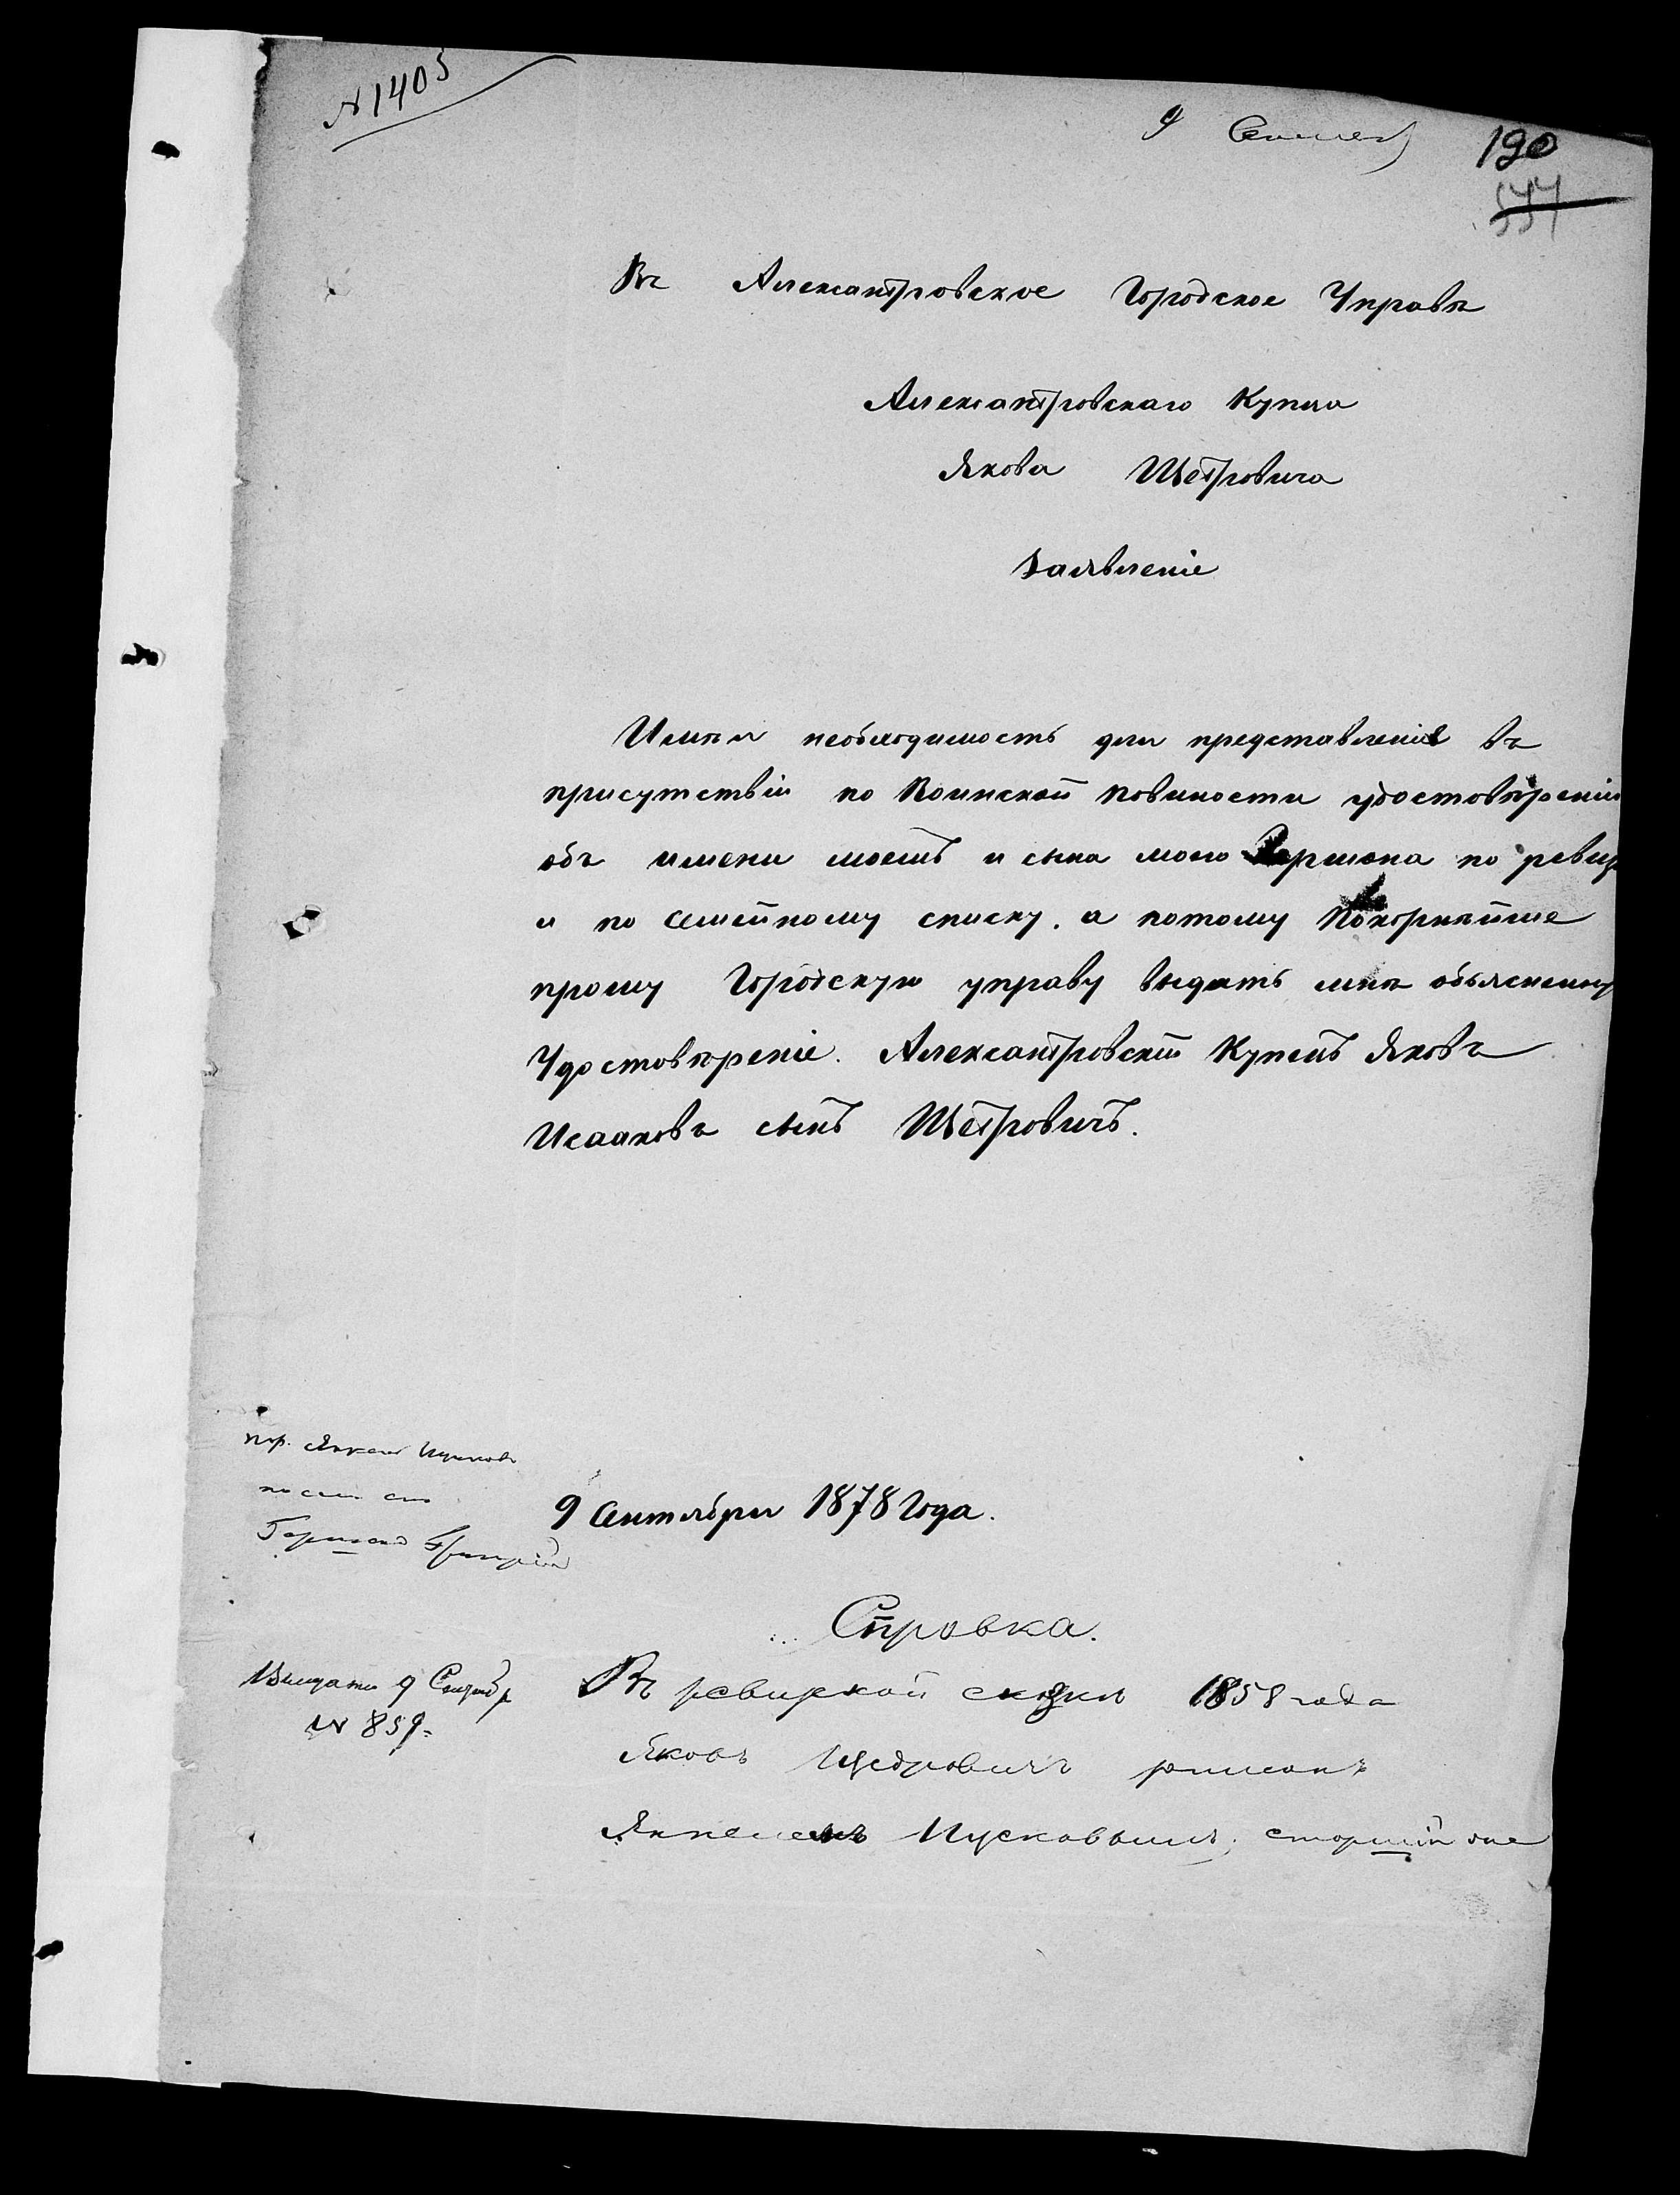 № 1405
9 Сентяб
190
544
Въ Александровское Городское Управѣ
Александровскаго Купца
Якова Щедровича
Заявленіе
Имѣя необходимость для представленія въ
присутствіи по Воинской повиности удостовѣреніи
объ имени моемъ и сына моего Гермона по ревиз
и по семейному списку, а потому Покорнѣйше
прошу Городскую управу выдать мнѣ объясненну
Удостовѣреніе. Александровскій Купецъ Яковъ
Исааковъ сынъ Щедровичъ.
9 Сентября 1878 Года.
Справка.
Выдати 9 Сентяб
№ 859.
Въ ревизкой сказки 1858 года
Яковъ Щедровичъ
Янкелемъ Ицковымъ, старшій